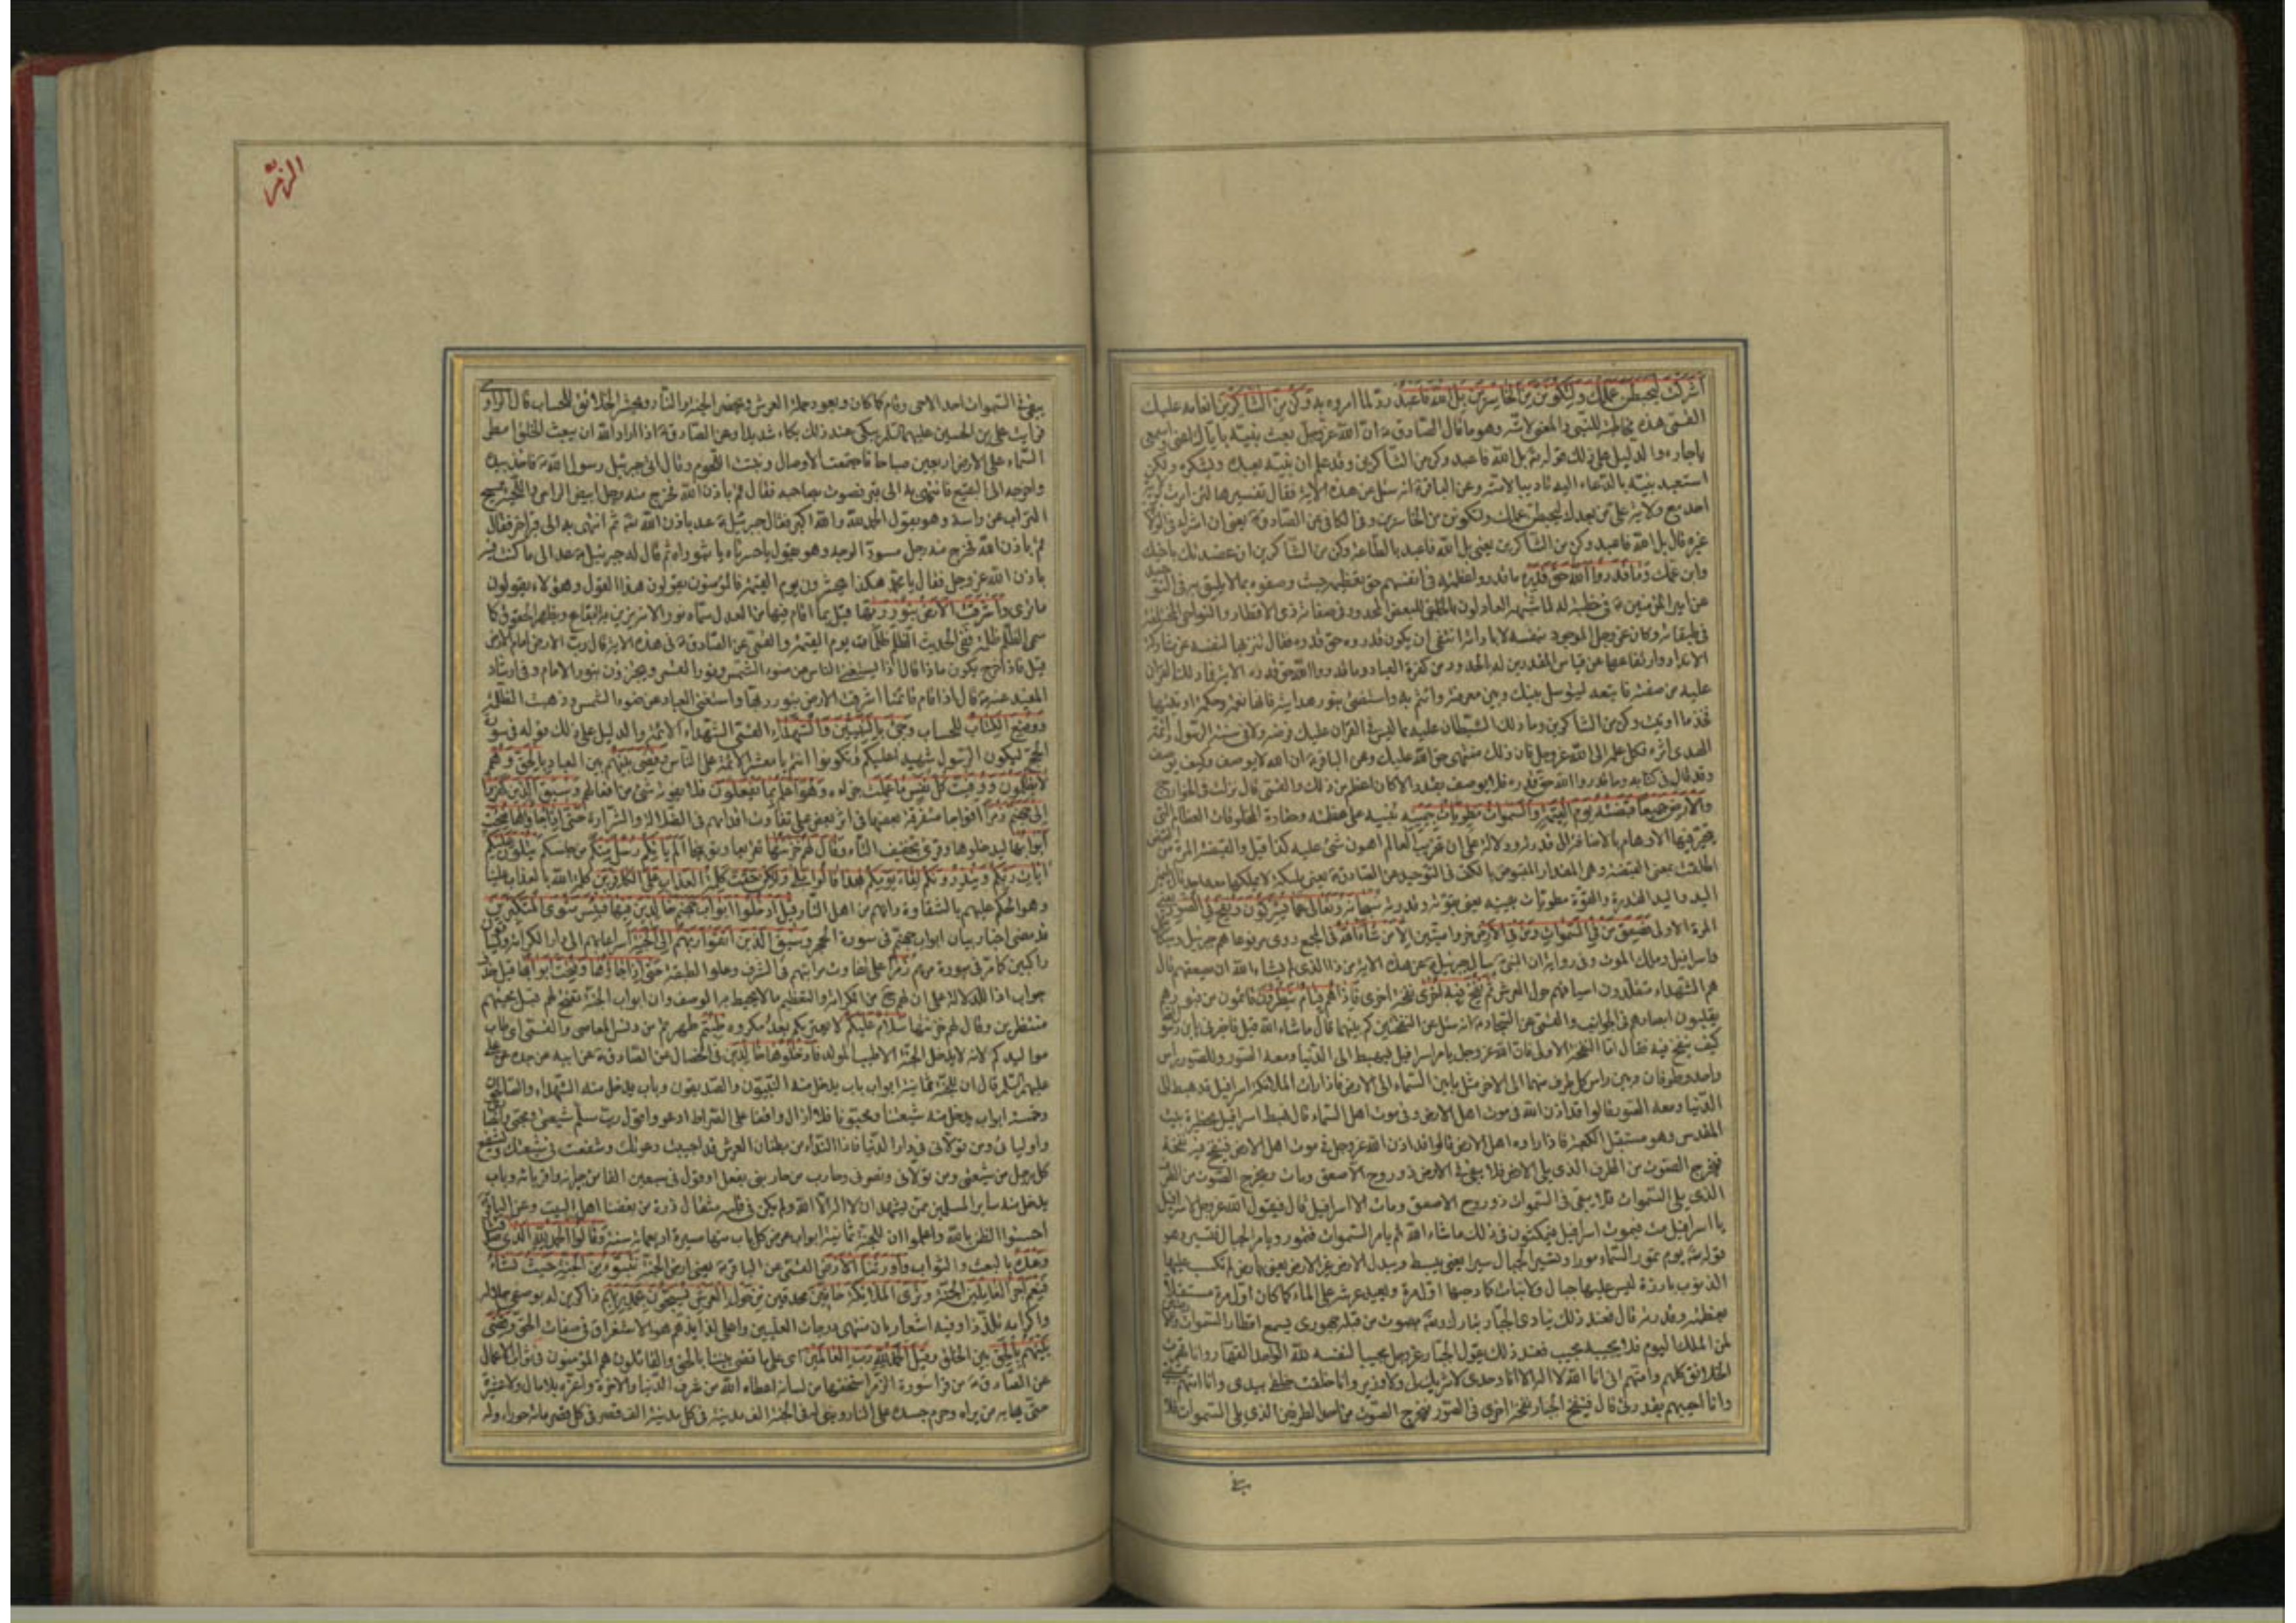 أشركت ليحبطن عملك ولتكونن من الخاسرين بل الله فاعبد رد لما امروه به وكن من الشاكرين انعامه عليك
القمي هذه مخاطبة للنبي والمعنى لامته وهو ما قال الصادق ان الله عز وجل بعث نبيه باياك اعني واسمعي
ياجاره والدليل على ذلك قوله بل الله فاعبد وكن من الشاكرين وقد علم ان نبيه يعبده ويشكره ولكن
استعبد نبيه بالدعاء اليه تاديبا لامته وعن الباقر انه سئل عن هذه الاية فقال تفسيرها لئن امرت بولاية
احد مع ولاية علي من بعدك ليحبطن عملك ولتكونن من الخاسرين وفي الكافي عن الصادق يعني ان اشركت في الولاية
غيره قال بل الله فاعبد وكن من الشاكرين يعني بل الله فاعبد بالطاعة وكن من الشاكرين ان عضدتك باخيك
وابن عمك وما قدروا الله حق قدره ما قدروا عظمته في انفسهم حق تعظيمه حيث وصفوه بما لا يليق به في التوحيد
عن امير المؤمنين في خطبة له لما شبهه العادلون بالخلق المبعض المحدود في صفاته ذي الاقطار والنواحي المختلفة
في طبقاته وكان عز وجل الموجود بنفسه لا باداته انتفى ان يكون قدروه حق قدره فقال تنزيها لنفسه عن مشاركة
الانداد وارتفاعها عن قياس المقدرين له بالحدود من كفرة العباد وما قدروا الله حق قدره الاية فما دلك القران
عليه من صفته فاتبعه ليوسل بينك وبين معرفته وائتم به واستضئ بنور هدايته فانها نعمة وحكمة اوتيتها
فخذ ما اوتيت وكن من الشاكرين وما دلك الشيطان عليه مما ليس في القران عليك فرضه ولا في سنة الرسول وائمة
الهدى اثره فكل علمه الى الله عز وجل فان ذلك منتهى حق الله عليك وعن الباقر ان الله لا يوصف وكيف يوصف
وقد قال في كتابه وما قدروا الله حق قدره فلا يوصف بقدر الا كان اعظم من ذلك والقمي قال نزلت في الخوارج
والارض جميعا قبضته يوم القيمة والسموات مطويات بيمينه تنبيه على عظمته وحقارة المخلوقات العظام التي
تتحير فيها الاوهام بالاضافة الى قدرته ودلالة على ان تخريب العالم اهون شئ عليه كذا قيل والقبضة المرة من القبض
اطلقت بمعنى القبضة وهي المقدار المقبوض بالكف في التوحيد عن الصادق يعني ملكه لا يملكها معه احد قال اليمين
اليد واليد القدرة والقوة مطويات بيمينه يعني بقوته وقدرته سبحانه وتعالى عما يشركون ونفخ في الصور يعني
المرة الاولى فصعق من في السموات ومن في الارض خروا ميتين الا من شاء الله في المجمع روي مرفوعا هم جبرئيل وميكائيل
واسرافيل وملك الموت وفي رواية ان النبي سال جبرئيل عن هذه الاية من ذا الذي لم يشاء الله ان يصعقهم قال
هم الشهداء متقلدون اسيافهم حول العرش ثم نفخ فيه اخرى نفخة اخرى فاذا هم قيام ينظرون قائمون من قبورهم
يقلبون ابصارهم في الجوانب والقمي عن السجاد انه سئل عن النفختين كم بينهما قال ما شاء الله قيل فاخبرني يابن رسول الله
كيف ينفخ فيه فقال اما النفخة الاولى فان الله عز وجل يامر اسرافيل فيهبط الى الدنيا ومعه الصور وللصور راس
واحد وطرفان وبين راس كل طرف منهما الى الاخر مثل ما بين السماء الى الارض فاذا رات الملائكة اسرافيل قد هبط الى
الدنيا ومعه الصور قالوا قد اذن الله في موت اهل الارض وفي موت اهل السماء قال فهبط اسرافيل بحظيرة بيت
المقدس وهو مستقبل الكعبة فاذا راوه اهل الارض قالوا قد اذن الله عز وجل في موت اهل الارض فينفخ فيه نفخة
فيخرج الصوت من الطرف الذي يلي الارض فلا يبقى في الارض ذو روح الا صعق ومات ويخرج الصوت من الطرف
الذي يلي السموات فلا يبقى في السموات ذو روح الا صعق ومات الا اسرافيل قال فيقول الله عز وجل لاسرافيل
يا اسرافيل مت فيموت اسرافيل فيمكثون في ذلك ما شاء الله ثم يامر السموات فتمور ويامر الجبال فتسير وهو
قوله يوم تمور السماء مورا وتسير الجبال سيرا يعني يبسط ويبدل الارض غير الارض يعني بارض لم تكسب عليها
الذنوب بارزة ليس عليها جبال ولا نبات كما دحيها اول مرة ويعيد عرشه على الماء كما كان اول مرة مستقلا
بعظمته وقدرته قال فعند ذلك ينادي الجبار تبارك وتعالى بصوت من قبله جهوري يسمع اقطار السموات والارضين
لمن الملك اليوم فلا يجيبه مجيب فعند ذلك يقول الجبار عز وجل مجيبا لنفسه لله الواحد القهار وانا قهرت
الخلائق كلهم وامتهم اني انا الله لا اله الا انا وحدي لا شريك لي ولا وزير وانا خلقت خلقي بيدي وانا امتهم بمشيتي
وانا احييهم بقدرتي قال فينفخ الجبار نفخة اخرى في الصور فيخرج الصوت من احد الطرفين الذي يلي السموات فلا
يبقى
الزمر
يبقى في السموات احد الا حي وقام كما كان ويعود حملة العرش ويحضر الجنة والنار ويحشر الخلائق للحساب قال الراوي
فرايت علي بن الحسين عليهما السلم يبكي عند ذلك بكاء شديدا وعن الصادق اذا اراد الله ان يبعث الخلق امطر
السماء على الارض اربعين صباحا فاجتمعت الاوصال ونبتت اللحوم وقال اتى جبرئيل رسول الله فاخذ بيده
واخرجه الى البقيع فانتهى به الى قبر فصوت بصاحبه فقال قم باذن الله فخرج منه رجل ابيض الراس واللحية يمسح
التراب عن راسه وهو يقول الحمد لله والله اكبر فقال جبرئيل عد باذن الله ثم انتهى به الى قبر اخر فقال
قم باذن الله فخرج منه رجل مسود الوجه وهو يقول يا حسرتاه يا ثبوراه ثم قال له جبرئيل عد الى ما كنت فيه
باذن الله عز وجل فقال يا محمد هكذا يحشرون يوم القيمة فالمؤمنون يقولون هذا القول وهؤلاء يقولون
ما ترى واشرقت الارض بنور ربها قيل بما اقام فيها من العدل سماه نورا لانه يزين به البقاع ويظهر الحقوق كما
سمي الظلم ظلمة ففي الحديث الظلم ظلمات يوم القيمة والقمي عن الصادق في هذه الاية قال رب الارض امام الارض
قيل فاذا خرج يكون ماذا قال اذا يستغني الناس عن ضوء الشمس ونور القمر ويجتزؤن بنور الامام وفي ارشاد
المفيد عنه قال اذا قام قائمنا اشرقت الارض بنور ربها واستغنى العباد عن ضوء الشمس وذهبت الظلمة
ووضع الكتاب للحساب وجئ بالنبيين والشهداء القمي الشهداء الائمة والدليل على ذلك قوله في سورة
الحج ليكون الرسول شهيدا عليكم وتكونوا انتم يا معشر الائمة على الناس وقضي بينهم بين العباد بالحق وهم
لا يظلمون ووفيت كل نفس ما عملت جزاءه وهو اعلم بما يفعلون فلا يفوته شئ من افعالهم وسيق الذين كفروا
الى جهنم زمرا افواجا متفرقة بعضها في اثر بعض على تفاوت اقدامهم في الضلالة والشرارة حتى اذا جاؤها فتحت
ابوابها ليدخلوها وقرئ بتخفيف التاء وقال لهم خزنتها تقريعا وتوبيخا الم ياتكم رسل منكم من جنسكم يتلون عليكم
ايات ربكم وينذرونكم لقاء يومكم هذا قالوا بلى ولكن حقت كلمة العذاب على الكافرين كلمة الله بالعذاب علينا
وهو الحكم عليهم بالشقاوة وانهم من اهل النار قيل ادخلوا ابواب جهنم خالدين فيها فبئس مثوى المتكبرين
قد مضى اخبار بيان ابواب جهنم في سورة الحجر وسيق الذين اتقوا ربهم الى الجنة اسراعا بهم الى دار الكرامة
راكبين كما مر في سورة مريم زمرا على تفاوت مراتبهم في الشرف وعلو الطبقة حتى اذا جاؤها وفتحت ابوابها قيل حذف
جواب اذا للدلالة على ان لهم ح من الكرامة والتعظيم ما لا يحيط به الوصف وان ابواب الجنة تفتح لهم قبل مجيئهم
منتظرين وقال لهم خزنتها سلام عليكم لا يعتريكم بعد مكروه طبتم طهرتم من دنس المعاصي والقمي اي طاب
مواليدكم لانه لا يدخل الجنة الا طيب المولد فادخلوها خالدين في الخصال عن الصادق عن ابيه عن جده عن علي
عليهم السلم قال ان للجنة ثمانية ابواب باب يدخل منه النبيون والصديقون وباب يدخل منه الشهداء والصالحون
وخمسة ابواب يدخل منه شيعتنا ومحبونا فلا ازال واقفا على الصراط ادعو واقول رب سلم شيعتي ومحبي وانصاري
واوليائي ومن تولاني في دار الدنيا فاذا النداء من بطنان العرش قد اجيبت دعوتك وشفعت في شيعتك ويشفع
كل رجل من شيعتي ومن تولاني ونصرني وحارب من حاربني بفعل او قول في سبعين الفا من جيرانه واقربائه وباب
يدخل منه ساير المسلمين ممن يشهد ان لا اله الا الله ولم يكن في قلبه مثقال ذرة من بغضنا اهل البيت وعن الباقر
احسنوا الظن بالله واعلموا ان للجنة ثمانية ابواب عرض كل باب منها مسيرة اربعمائة سنة وقالوا الحمد لله الذي صدقنا
وعده بالبعث والثواب واورثنا الارض القمي عن الباقر يعني ارض الجنة نتبوء من الجنة حيث نشاء
فنعم اجر العاملين الجنة وترى الملائكة حافين محدقين من حول العرش يسبحون بحمد ربهم ذاكرين له بوصفي جلاله
واكرامه تلذذا وفيه اشعار بان منتهى درجات العليين واعلى لذائذهم هو الاستغراق في صفات الحق وقضي
بينهم بالحق بين الخلق وقيل الحمد لله رب العالمين اي على ما قضى بيننا بالحق والقائلون هم المؤمنون في ثواب الاعمال
عن الصادق من قرا سورة الزمر استخفها من لسانه اعطاه الله من شرف الدنيا والاخرة واعزه بلا مال ولا عشيرة
حتى يهابه من يراه وحرم جسده على النار وبنى له في الجنة الف مدينة في كل مدينة الف قصر في كل قصر مائة حوراء وله